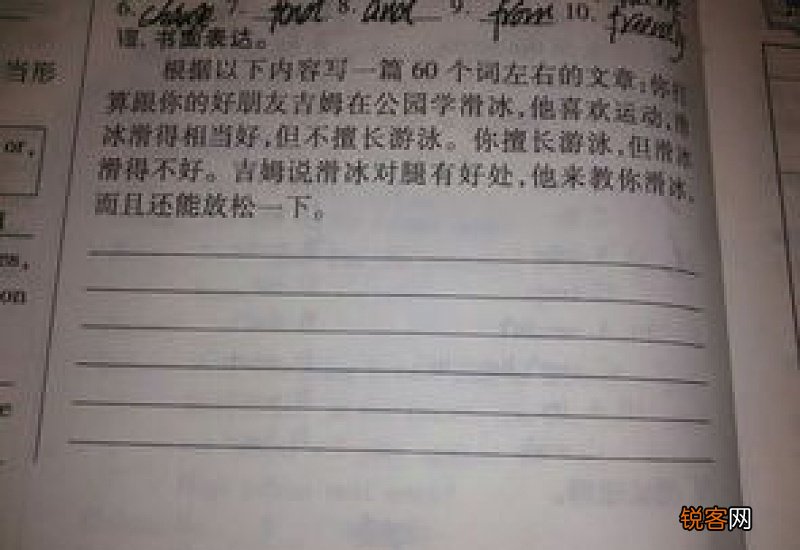 6. change 7. food 8. and 9. from 10. friendly
书面表达。
当形
根据以下内容写一篇 60 个词左右的文章:你打
算跟你的好朋友吉姆在公园学滑冰,他喜欢运动,滑
or,
冰滑得相当好,但不擅长游泳。你擅长游泳,但滑冰
滑得不好。吉姆说滑冰对腿有好处,他来教你滑冰,
而且还能放松一下。
es,
on
锐客网